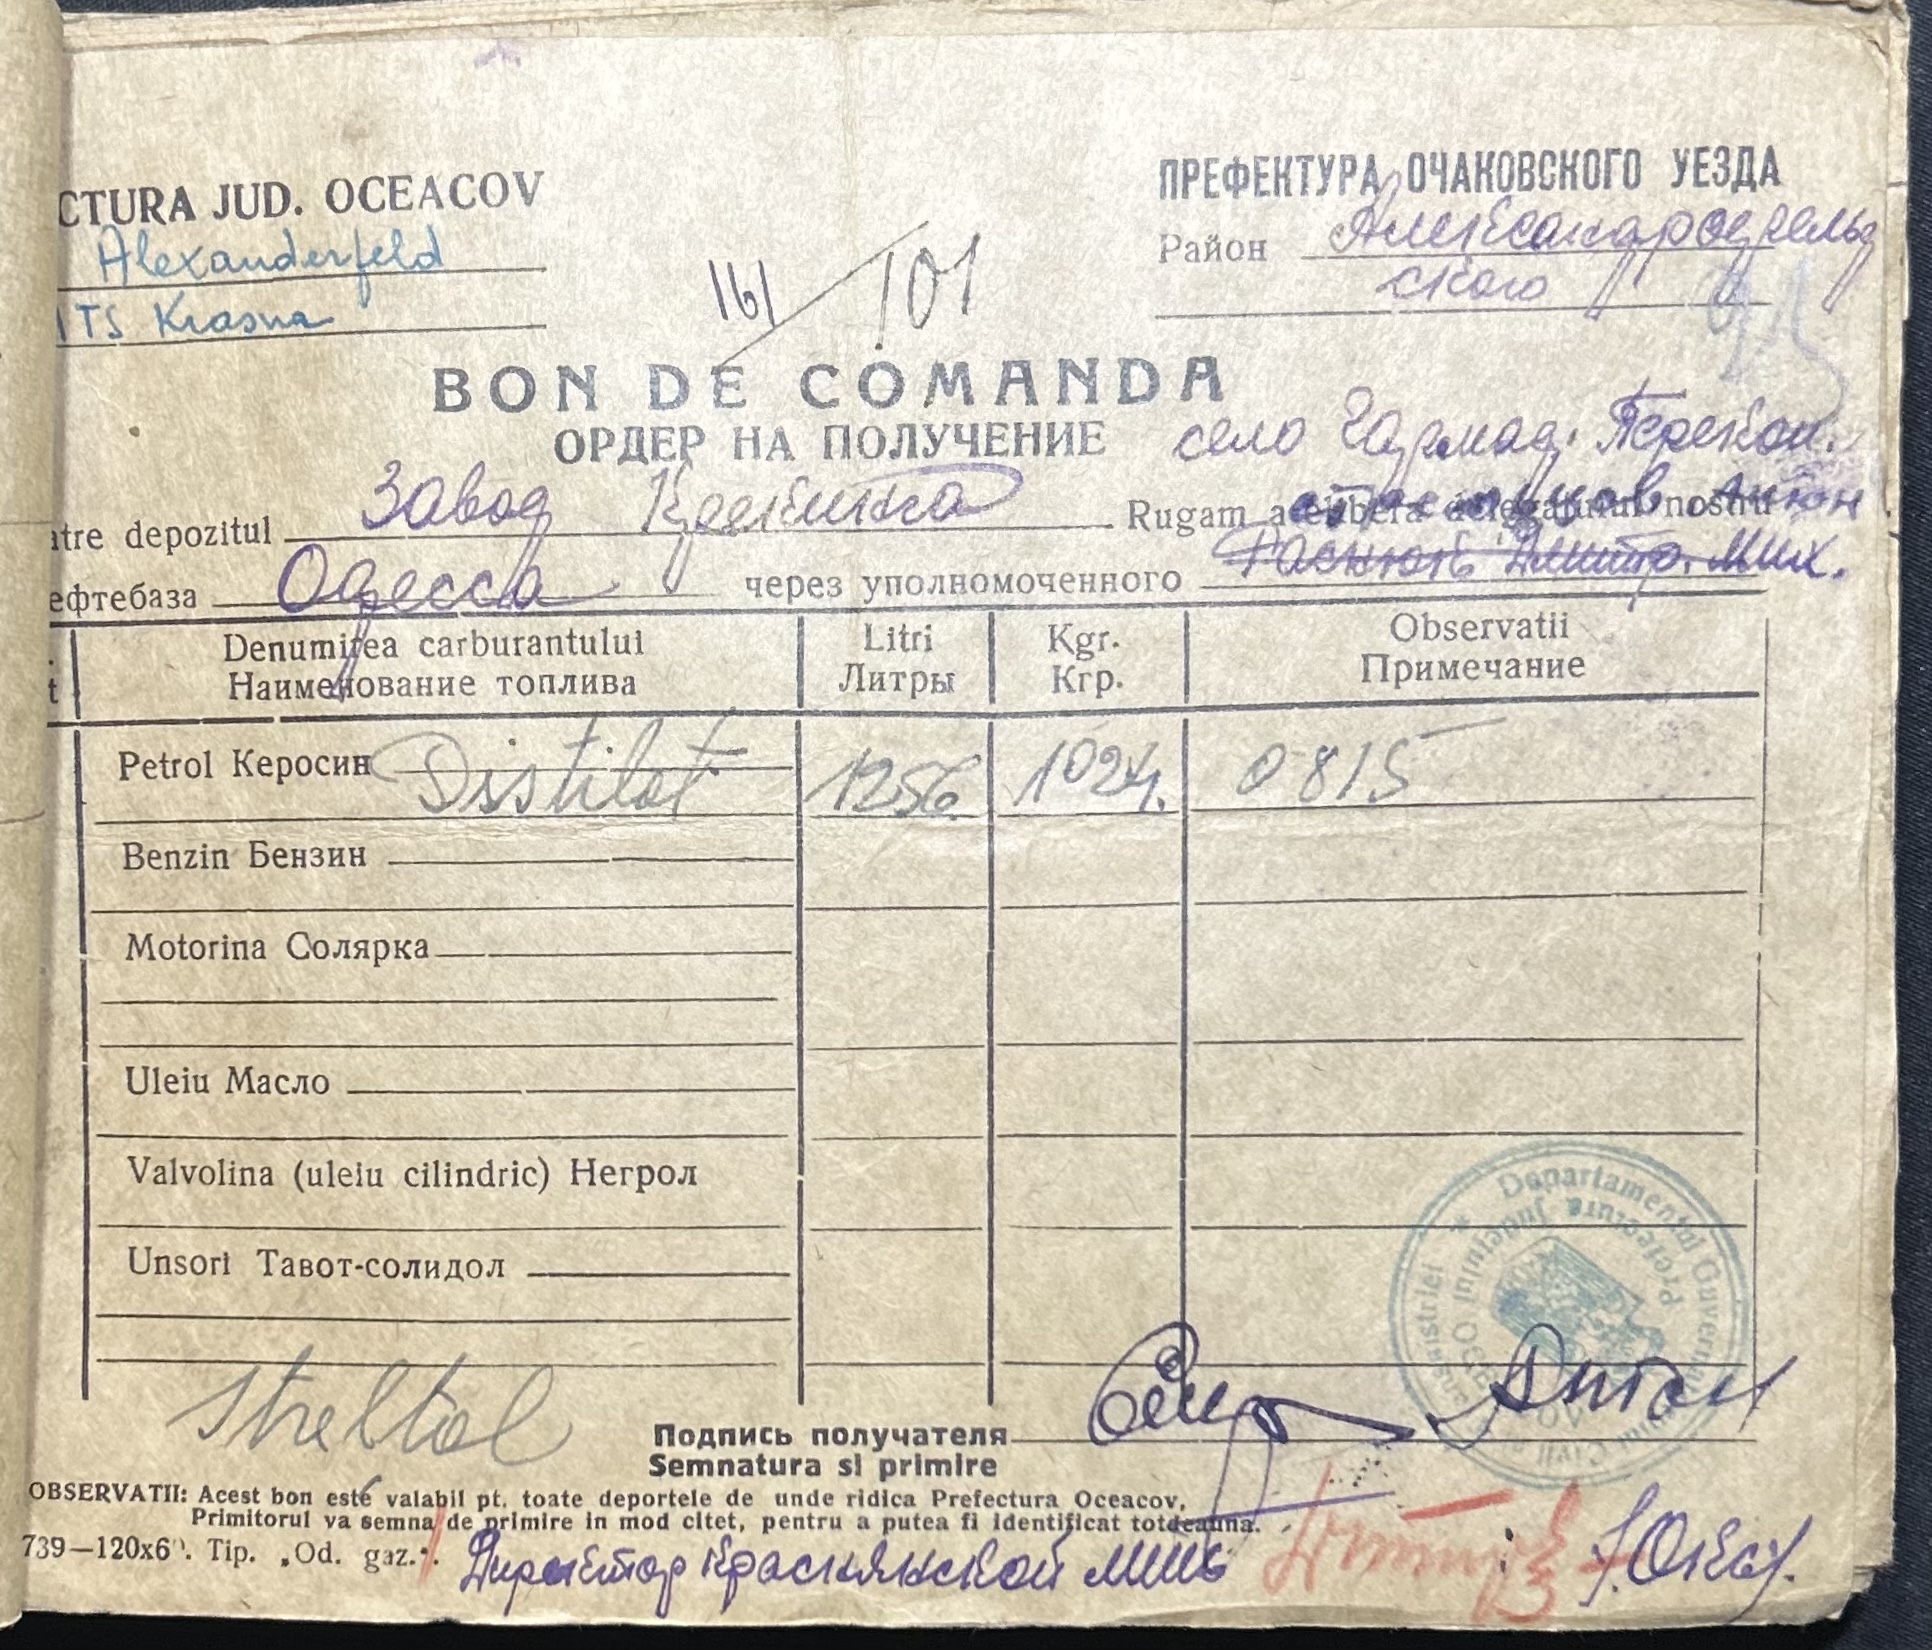 CTURA JUD. OCEACOV
ПРЕФЕКТУРА ОЧАКОВСКОГО УЕЗДА
Alexanderfeld
Район Александрфельд
ского
TS Krasna
161/101
BON DE COMANDA
ОРДЕР НА ПОЛУЧЕНИЕ
село
atre depozitul Завод Rugam a elibera delegatului nostru Антон
ефтебаза Одесса через уполномоченного Мих.
Denumirea carburantului Litri Kgr. Observatii
t Наименование топлива Литры Кгр. Примечание
Petrol Керосин Distilat 1256 1024. 0815
Benzin Бензин
Motorina Солярка
Uleiu Масло
Valvolina (uleiu cilindric) Негрол
Unsori Тавот-солидол
* Departamentul Guvernamantului Civil Transnistriei
Prefectura Judeţului
Антон
Подпись получателя
Semnatura si primire
OBSERVATII: Acest bon este valabil pt. toate deportele de unde ridica Prefectura Oceacov.
Primitorul va semna de primire in mod citet, pentru a putea fi identificat totdeauna.
739—120x6 . Tip. „Od. gaz.".
Директор Краснянской